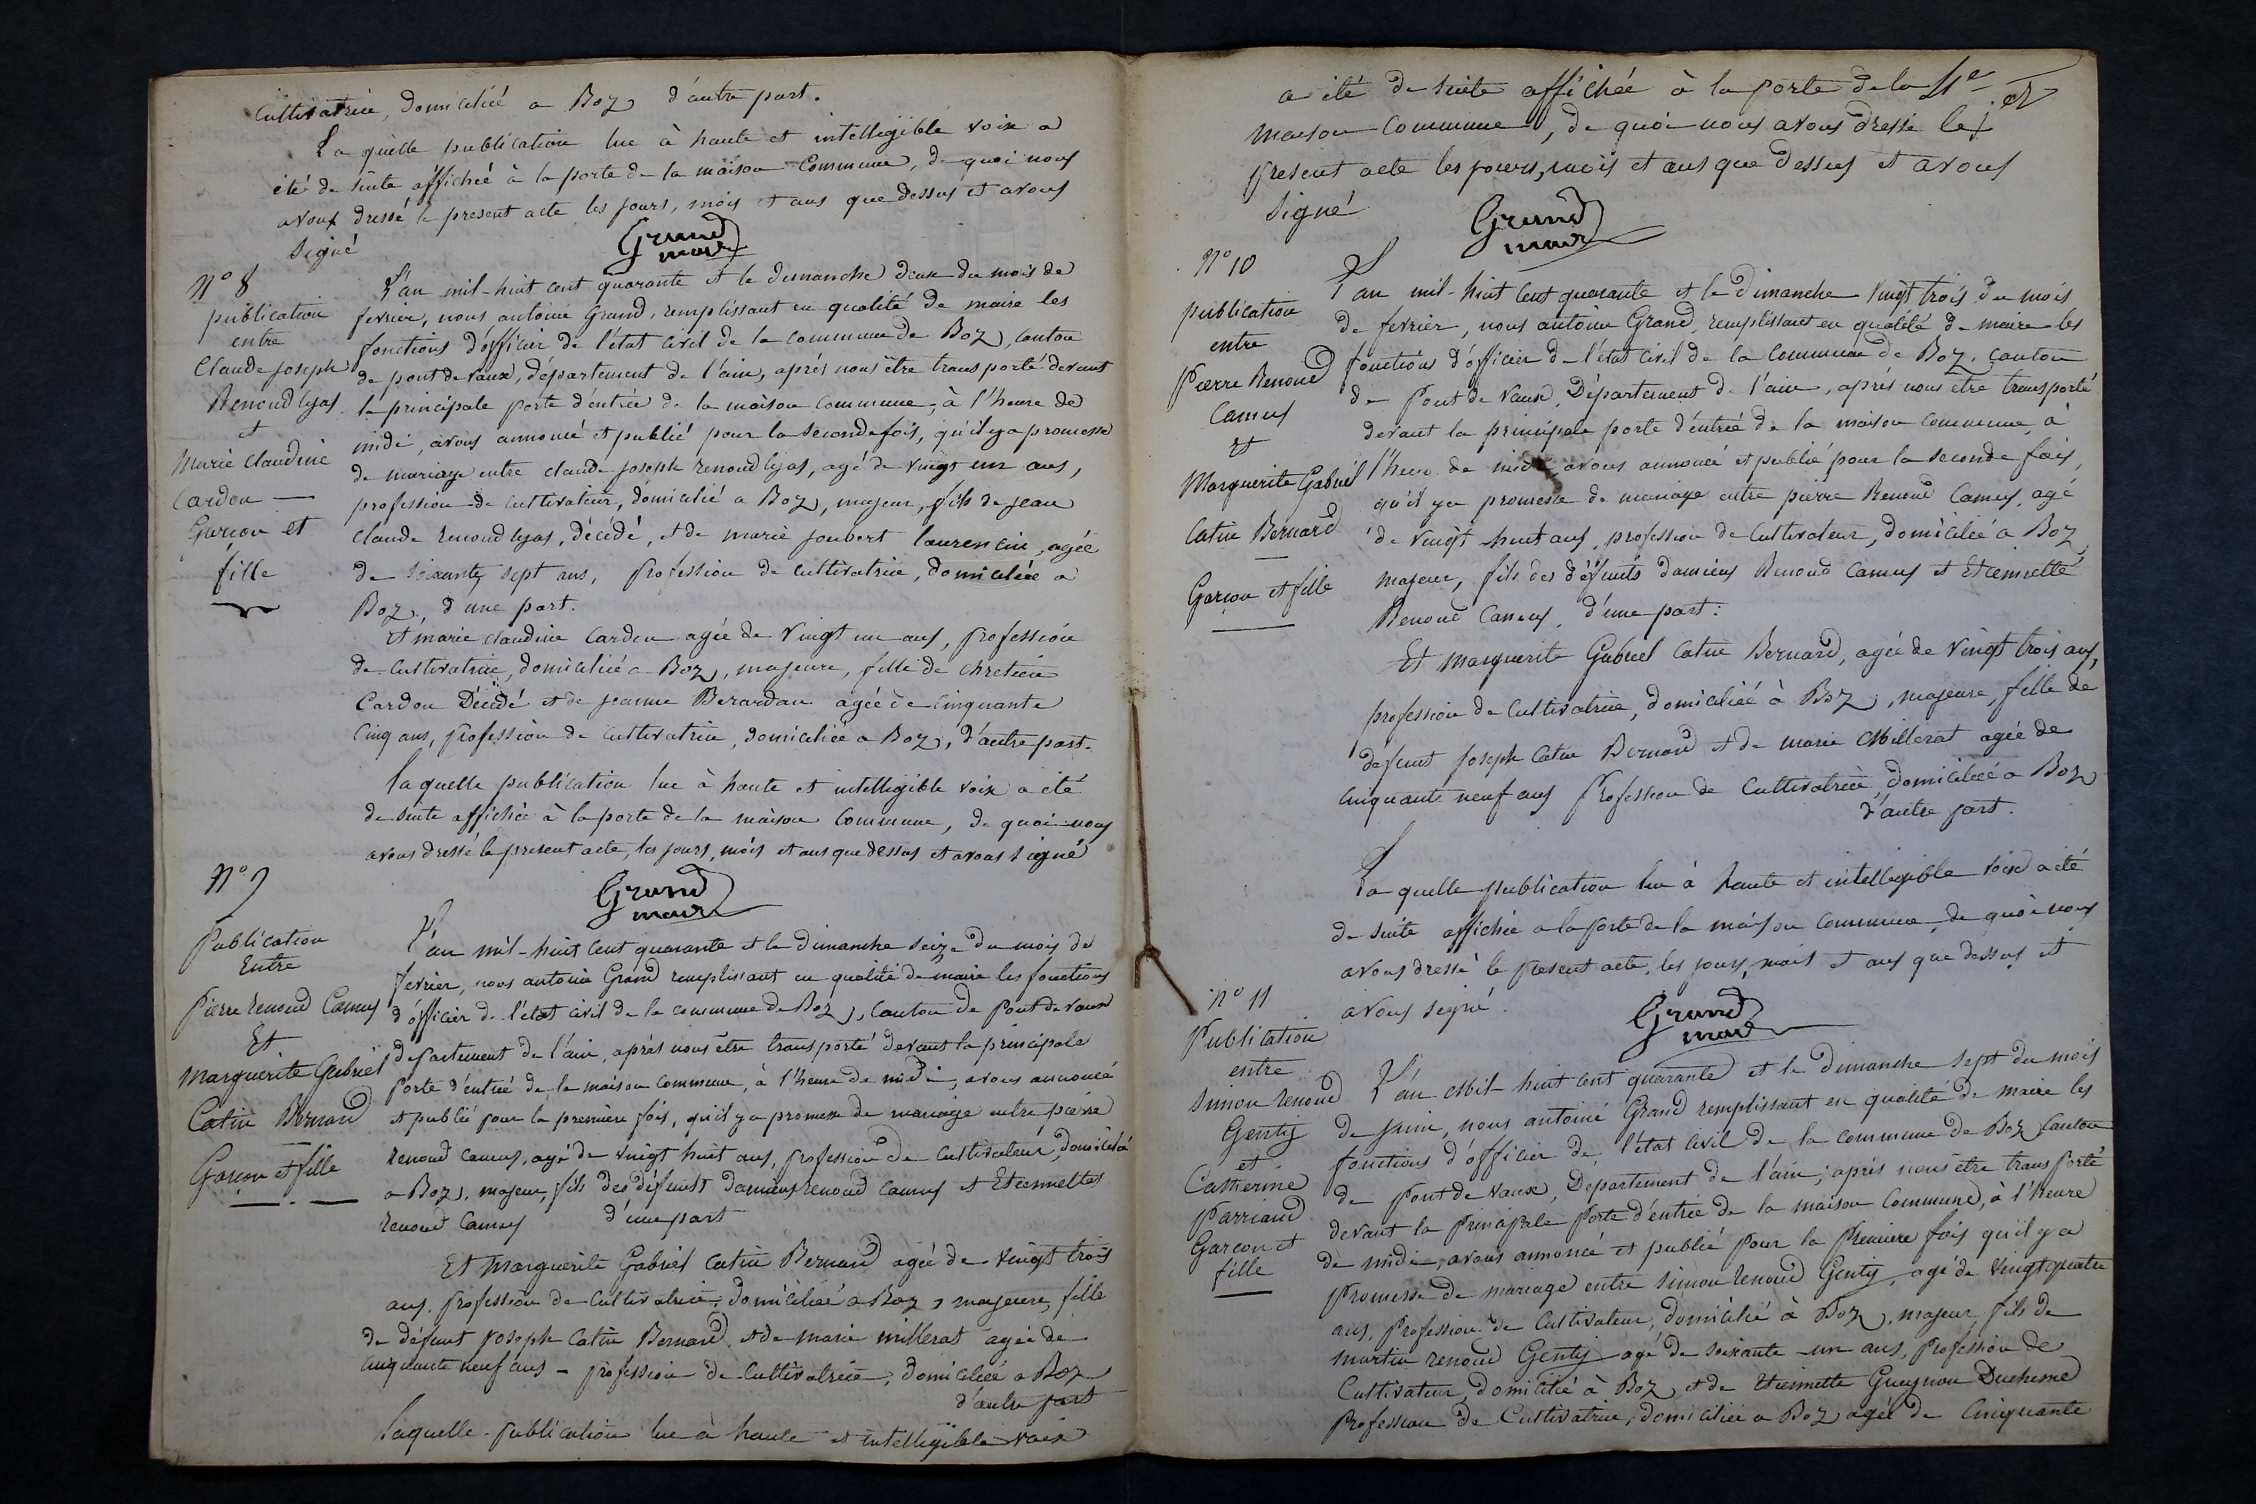 Cultivatrice, domiciliée a Boz d'autre part.
La quelle publication lue à haute et intelligible voix a
été de suite affichée à la porte de la maison Commune, de quoi nous
avons dressé le present acte les jours, mois et ans que dessus et avons
signé
Grand
maire
N° 8
publication
entre
Claude joseph
Renoud lyas
et
Marie Claudine
Cardon
Garçon et
fille
L'an mil-huit cent quarante et le dimanche deux du mois de
fevrier, nous antoine Grand, remplissant en qualité de maire les
fonctions d'officier de l'état civil de la commune de Boz, canton
de pont de vaux, département de l'ain, aprés nous être transporté devant
la principale porte d'entrée de la maison commune, à l'heure de
midi, avons annoncé et publié pour la seconde fois, qu'il y a promesse
de mariage entre claude joseph renoud lyas, agé de vingt un ans,
profession de cultivateur, domicilié a Boz, majeur, fils de jean
claude renoud lyas, décédé, et de marie joubert laurencin, agée
de soixante sept ans, profession de cultivatrice, domiciliée a
Boz, d'une part.
et marie claudine cardon agée de vingt un ans, profession
de cultivatrice, domiciliée a Boz, majeure, fille de chretien
Cardon Décédé et de jeanne Berardan agée de cinquante
cinq ans, profession de cultivatrice, domiciliée a Boz, d'autre part.
la quelle publication lue à haute et intelligible voix a été
de suite affichée à la porte de la maison Commune, de quoi nous
avons dressé le present acte, les jours, mois et ans que dessus et avons signé
Grand
maire
N° 9
Publication
Entre
Pierre renoud Camus
Et
Marguerite Gabriel
Catin Bernard
Garçon et fille
L'an mil-huit cent quarante et le dimanche seize du mois de
fevrier, nous antoine Grand remplissant en qualité de maire les fonctions
d'officier de l'état civil de la commune de Boz, canton de Pont de vaux
departement de l'ain, aprés nous être transporté devant la principale
porte d'entrée de la maison commune, à l'heure de midi, avons annoncé
et publié pour la première fois, qu'il y a promesse de mariage entre pierre
renoud camus, agé de vingt huit ans, profession de cultivateur, domicilié
a Boz, majeur, fils des défunts Damien renoud camus et Etiennette
renoud Camus d'une part
Et Marguerite Gabriel Catin Bernard agée de vingt trois
ans, profession de cultivatrice, domiciliée a Boz, majeure, fille
de défunt Joseph Catin Bernard et de marie millerat agée de
cinquante neuf ans - profession de cultivatrice, domiciliée a Boz
d'autre part
laquelle publication lue à haute et intelligible voix
a été de suite affichée à la porte de la
maison commune, de quoi nous avons dressé le
present acte les jours, mois et ans que dessus et avons
signé
Grand
maire
N° 10
publication
entre
Pierre Renoud
Camus
et
Marguerite Gabriel
Catin Bernard
Garçon et fille
L'an mil-huit cent quarante et le Dimanche vingt trois du mois
de fevrier, nous antoine Grand, remplissant en qualité de maire les
fonctions d'officier de l'état civil de la Commune de Boz, canton
de Pont de Vaux, Département de l'ain, aprés nous être transporté
devant la principale porte d'entrée de la maison commune, à
l'heure de midi avons annoncé et publié pour la seconde fois,
qu'il y a promesse de mariage entre pierre Renoud Camus, agé
de vingt huit ans, profession de Cultivateur, domicilié a Boz
majeur, fils des défunts damiens Renoud Camus et Etiennette
Renoud Camus, d'une part:
Et Marguerite Gabriel Catin Bernard, agée de vingt trois ans,
profession de Cultivatrice, domiciliée à Boz, majeure, fille de
defunt joseph Catin Bernard et de marie Millerat agée de
cinquante neuf ans Profession de Cultivatrice, domiciliée a Boz
d'autre part.
La quelle publication lue à haute et intelligible voix a été
de suite affichée a la porte de la maison commune, de quoi nous
avons dressé le present acte, les jours, mois et ans que dessus et
avons signé.
Grand
maire
N° 11
Publication
entre
Simon renoud
Genty
et
Catherine
Parriaud
Garçon et
fille
L'an Mil-huit cent quarante et le Dimanche sept du mois
de juin, nous antoine Grand remplissant en qualité de maire les
fonctions d'officier de l'état civil de la commune de Boz, canton
de Pont de vaux, Département de l'ain, aprés nous être transporté
devant la Principale Porte d'entrée de la maison Commune, à l'heure
de midi, avons annoncé et publié Pour la Premiere fois qu'il y a
Promesse de mariage entre simon renoud Genty, agé de vingt quatre
ans, Profession de Cultivateur, domicilié à Boz, majeur, fils de
martin renoud Genty agé de soixante-un ans, Profession de
Cultivateur, domicilié à Boz et de Etiennette Gueynon Duchesne
Profession de Cultivatrice, domiciliée a Boz agée de Cinquante